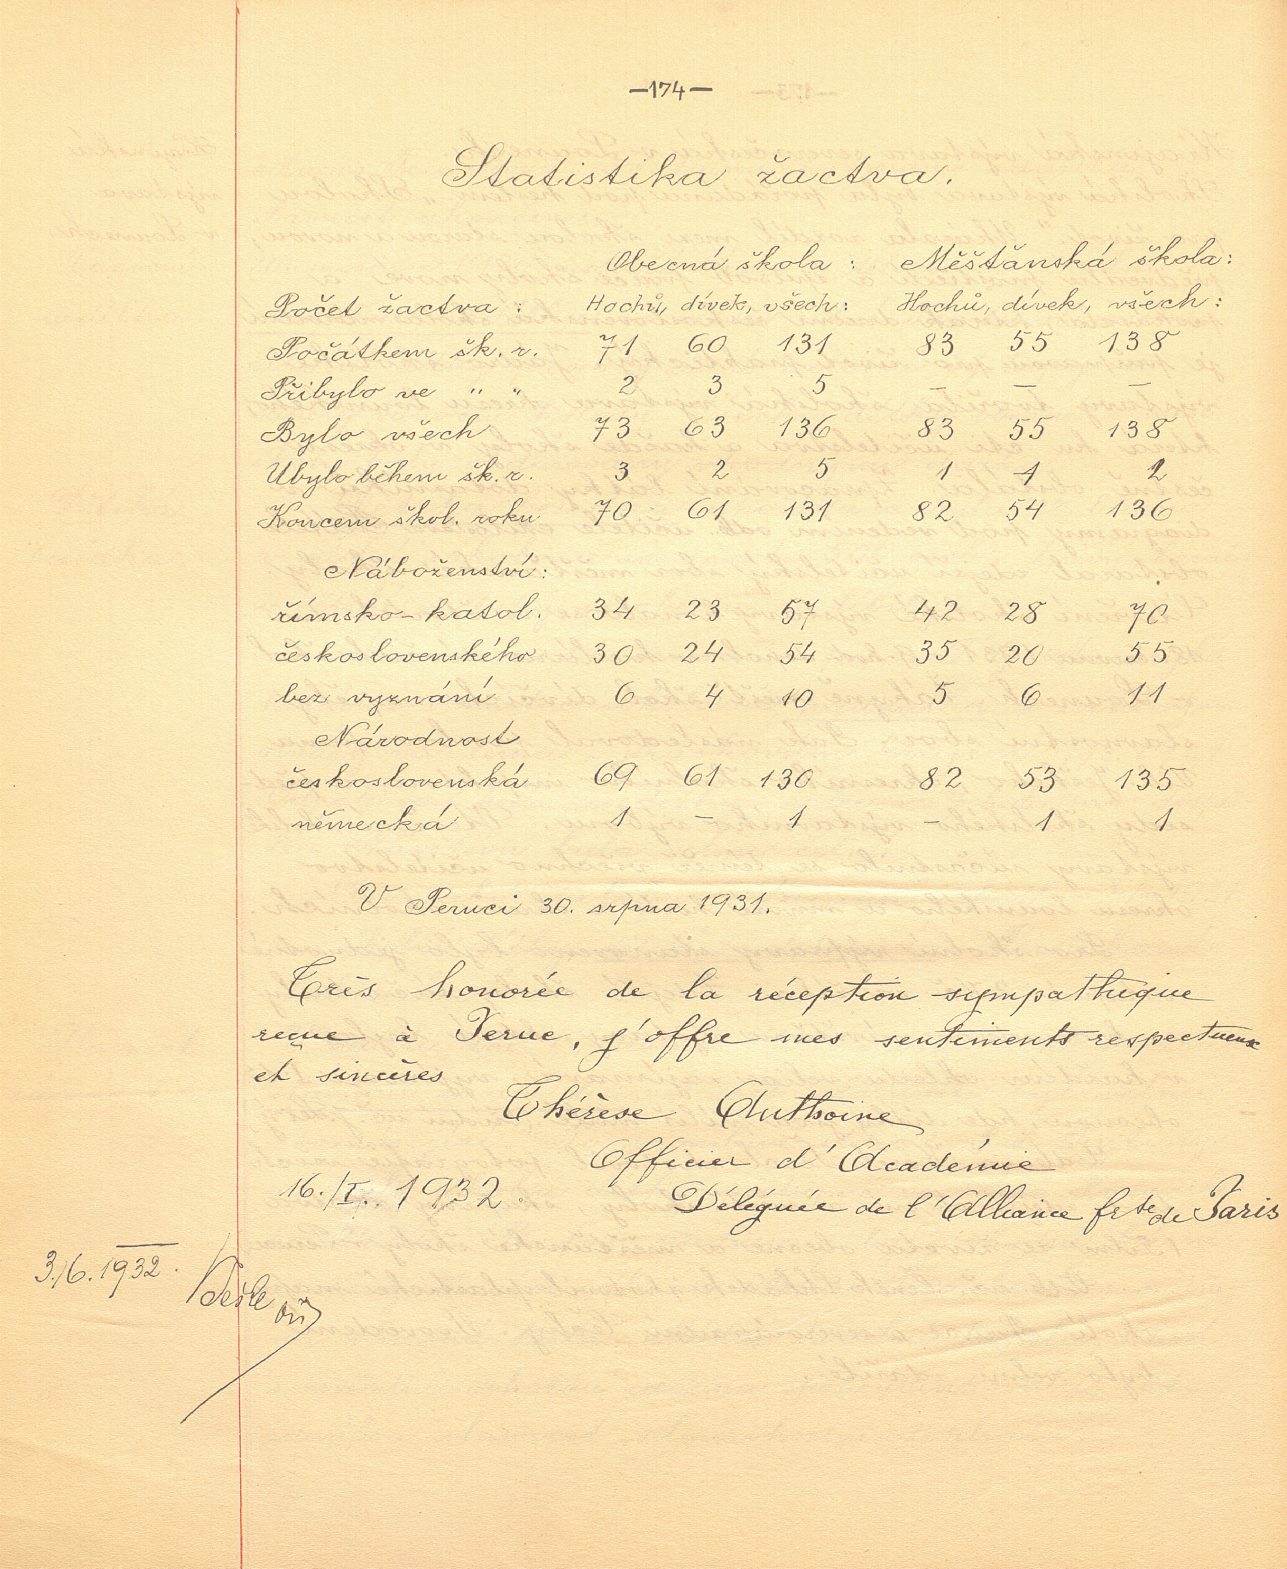 —174—
Statistika žactva.
Obecná škola : Měšťanská škola:
Počet žactva : Hochů, dívek, všech: Hochů, dívek, všech:
Počátkem šk. r. 71 60 131 83 55 138
Přibylo ve " " 2 3 5 — — —
Bylo všech 73 63 136 83 55 138
Ubylo během šk. r. 3 2 5 1 1 2
Koncem škol. roku 70 61 131 82 54 136
Náboženství:
římsko-katol. 34 23 57 42 28 70
československého 30 24 54 35 20 55
bez vyznání 6 4 10 5 6 11
Národnost
československá 69 61 130 82 53 135
německá 1 — 1 — 1 1
V Peruci 30. srpna 1931.
Très honorée de la réception sympathique
reçue à Peruc, j'offre mes sentiments respectueux
et sincères
Thérèse Anthoine
Officier d'Académie
16./I. 1932.
Déléguée de l'Alliance frse de Paris
3./6. 1932.